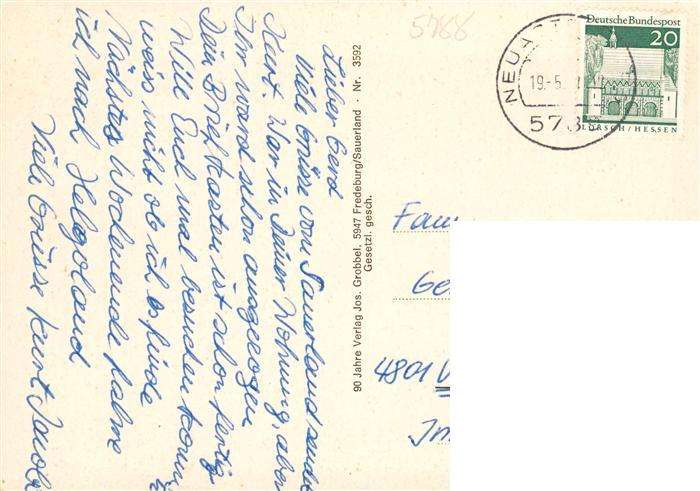 5788
Lieber Gerd
Viele Grüsse vom Sauerland sendet
Kurt. War in Deiner Wohnung, aber
Ihr ward schon ausgezogen
Dein Briefkasten ist schon fertig
Will Euch mal besuchen komm
weiss nicht ob ich es finde
Nächstes Wochenende fahre
ich nach Helgoland
Viele Grüsse Kurt
90 Jahre Verlag Jos. Grobbel, 5947 Fredeburg/Sauerland · Nr. 3592
Gesetzl. gesch.
19.-5.
Deutsche Bundespost
20
LORSCH/HESSEN
Fam
Ge
4801